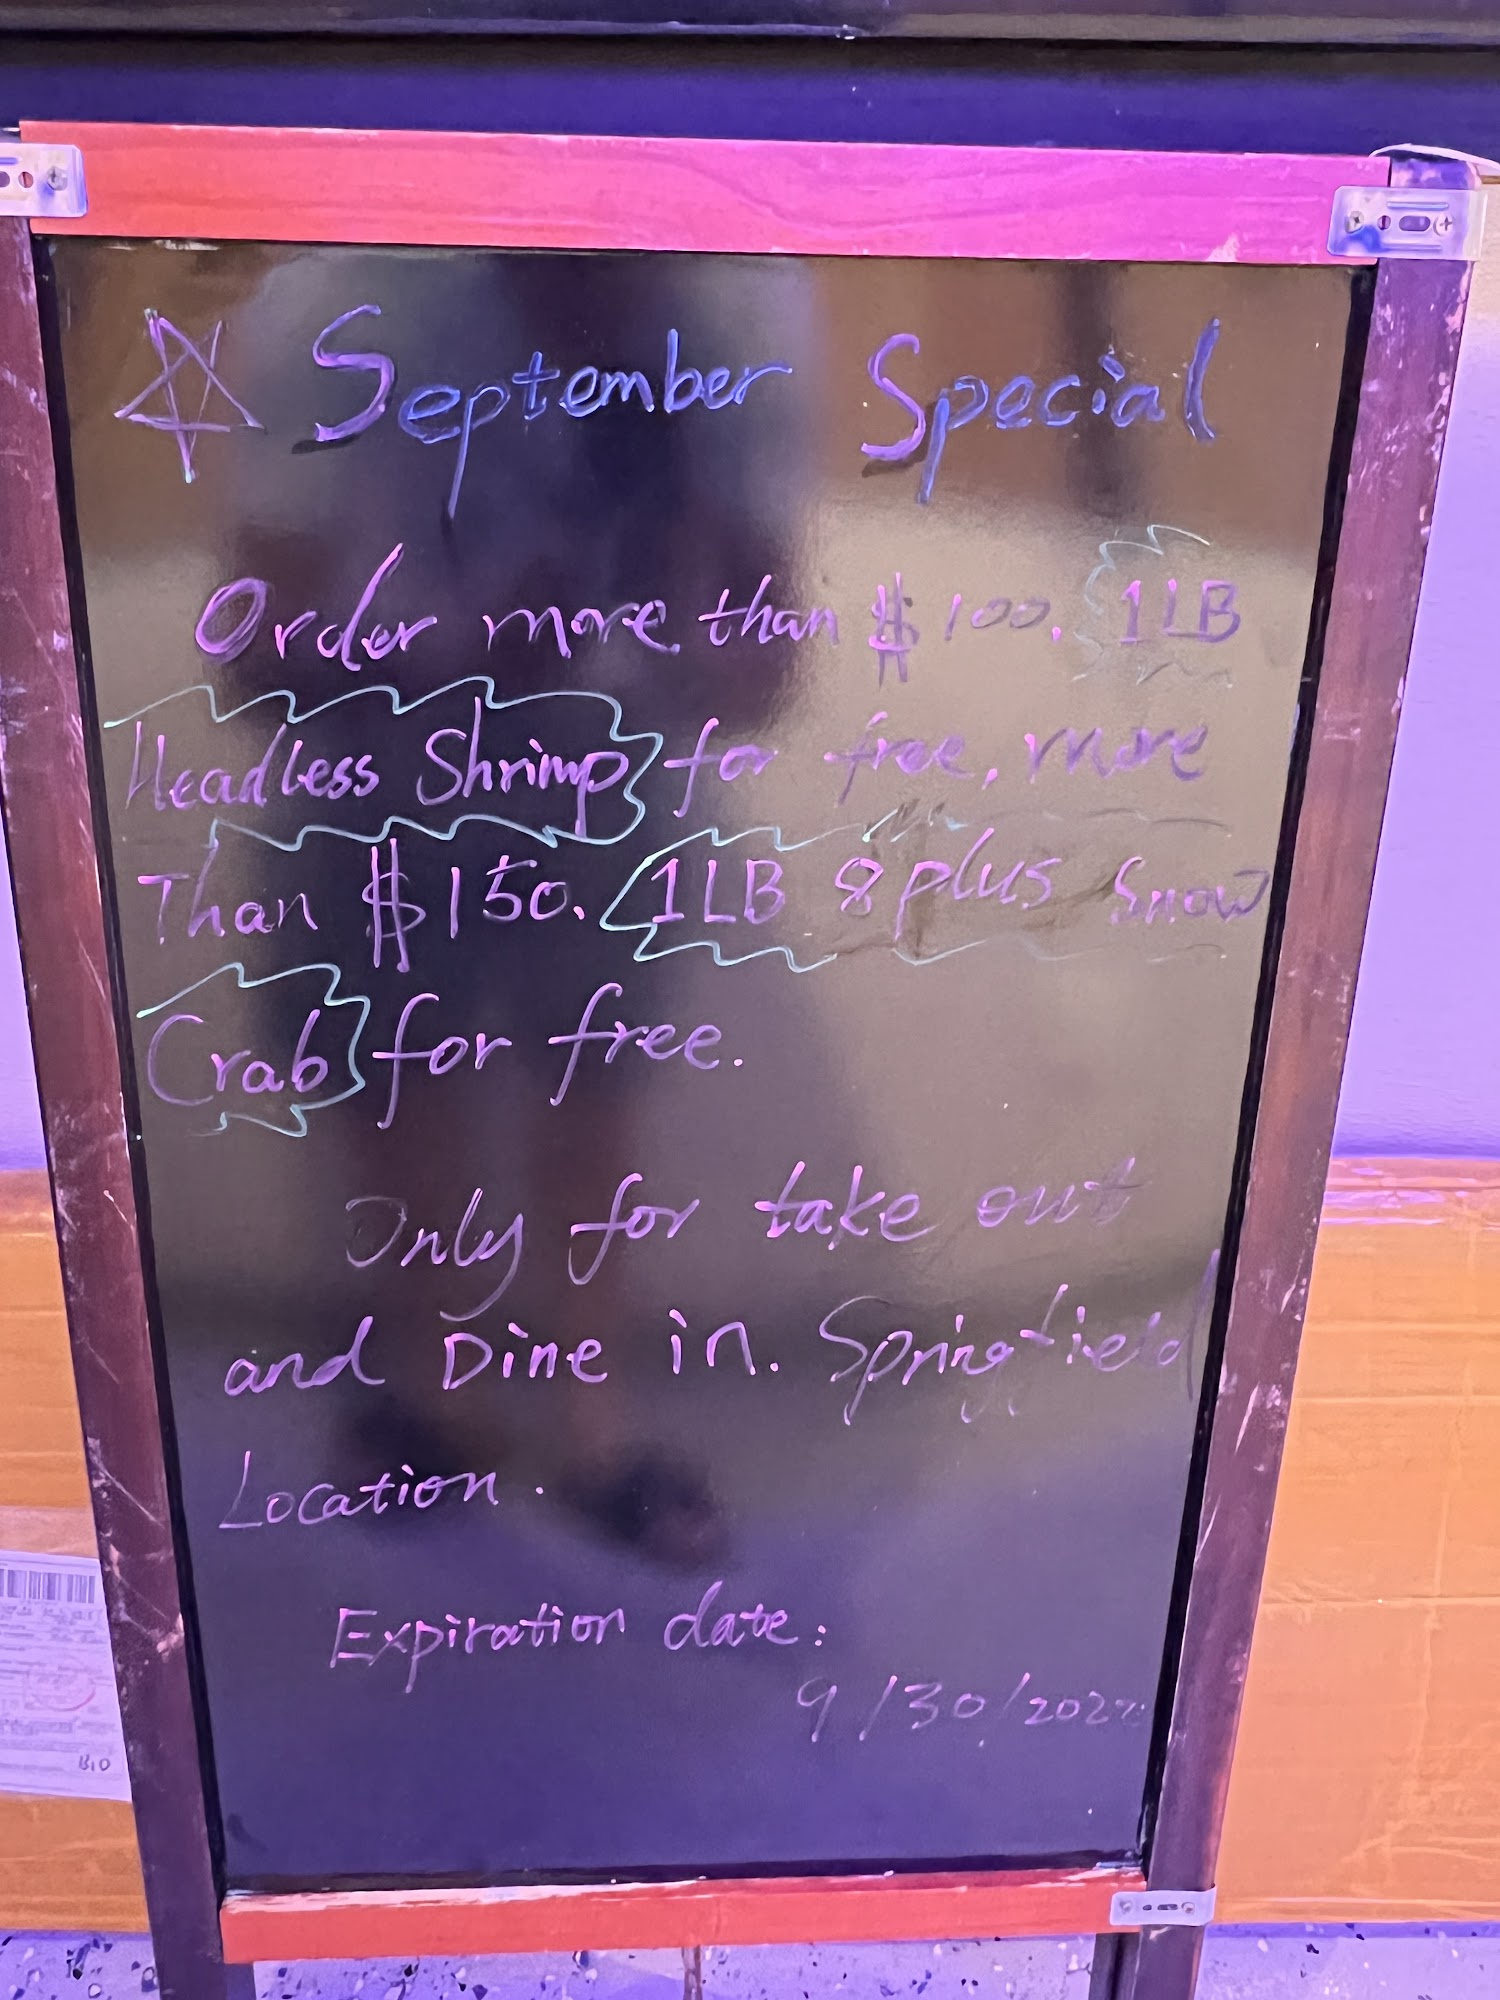 September Special
Order more than $100. 1LB
Headless Shrimp for free, more
Than $150. 1LB 8plus Snow
Crab for free.
Only for take out
and Dine in. Springfield
Location.
Expiration date:
9/30/2022
B10